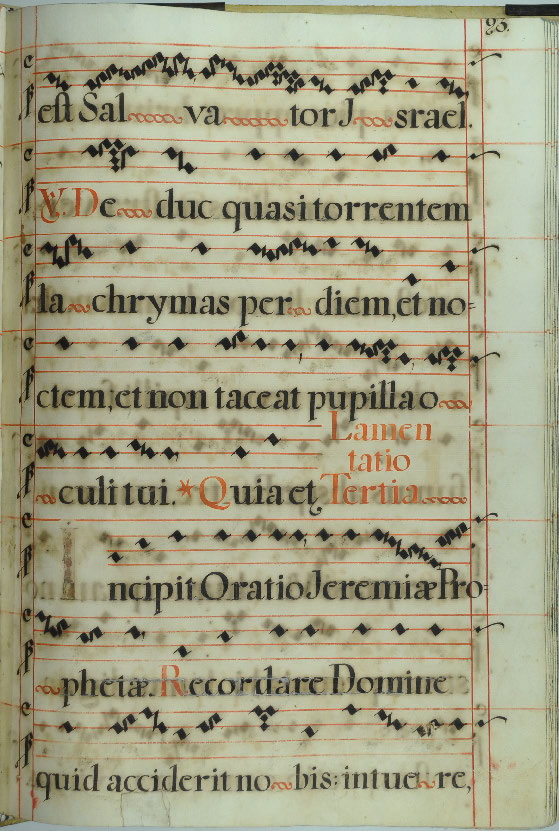 est Sal va tor J srael.
V. De duc quasi torrentem
la chrymas per diem, et no=
ctem, et non taceat pupilla o
culi tui. * Quia et Lamen
tatio
Tertia
Incipit Oratio Jeremiæ Pro=
phetæ. Recordare Domine
quid acciderit no bis: intue re,